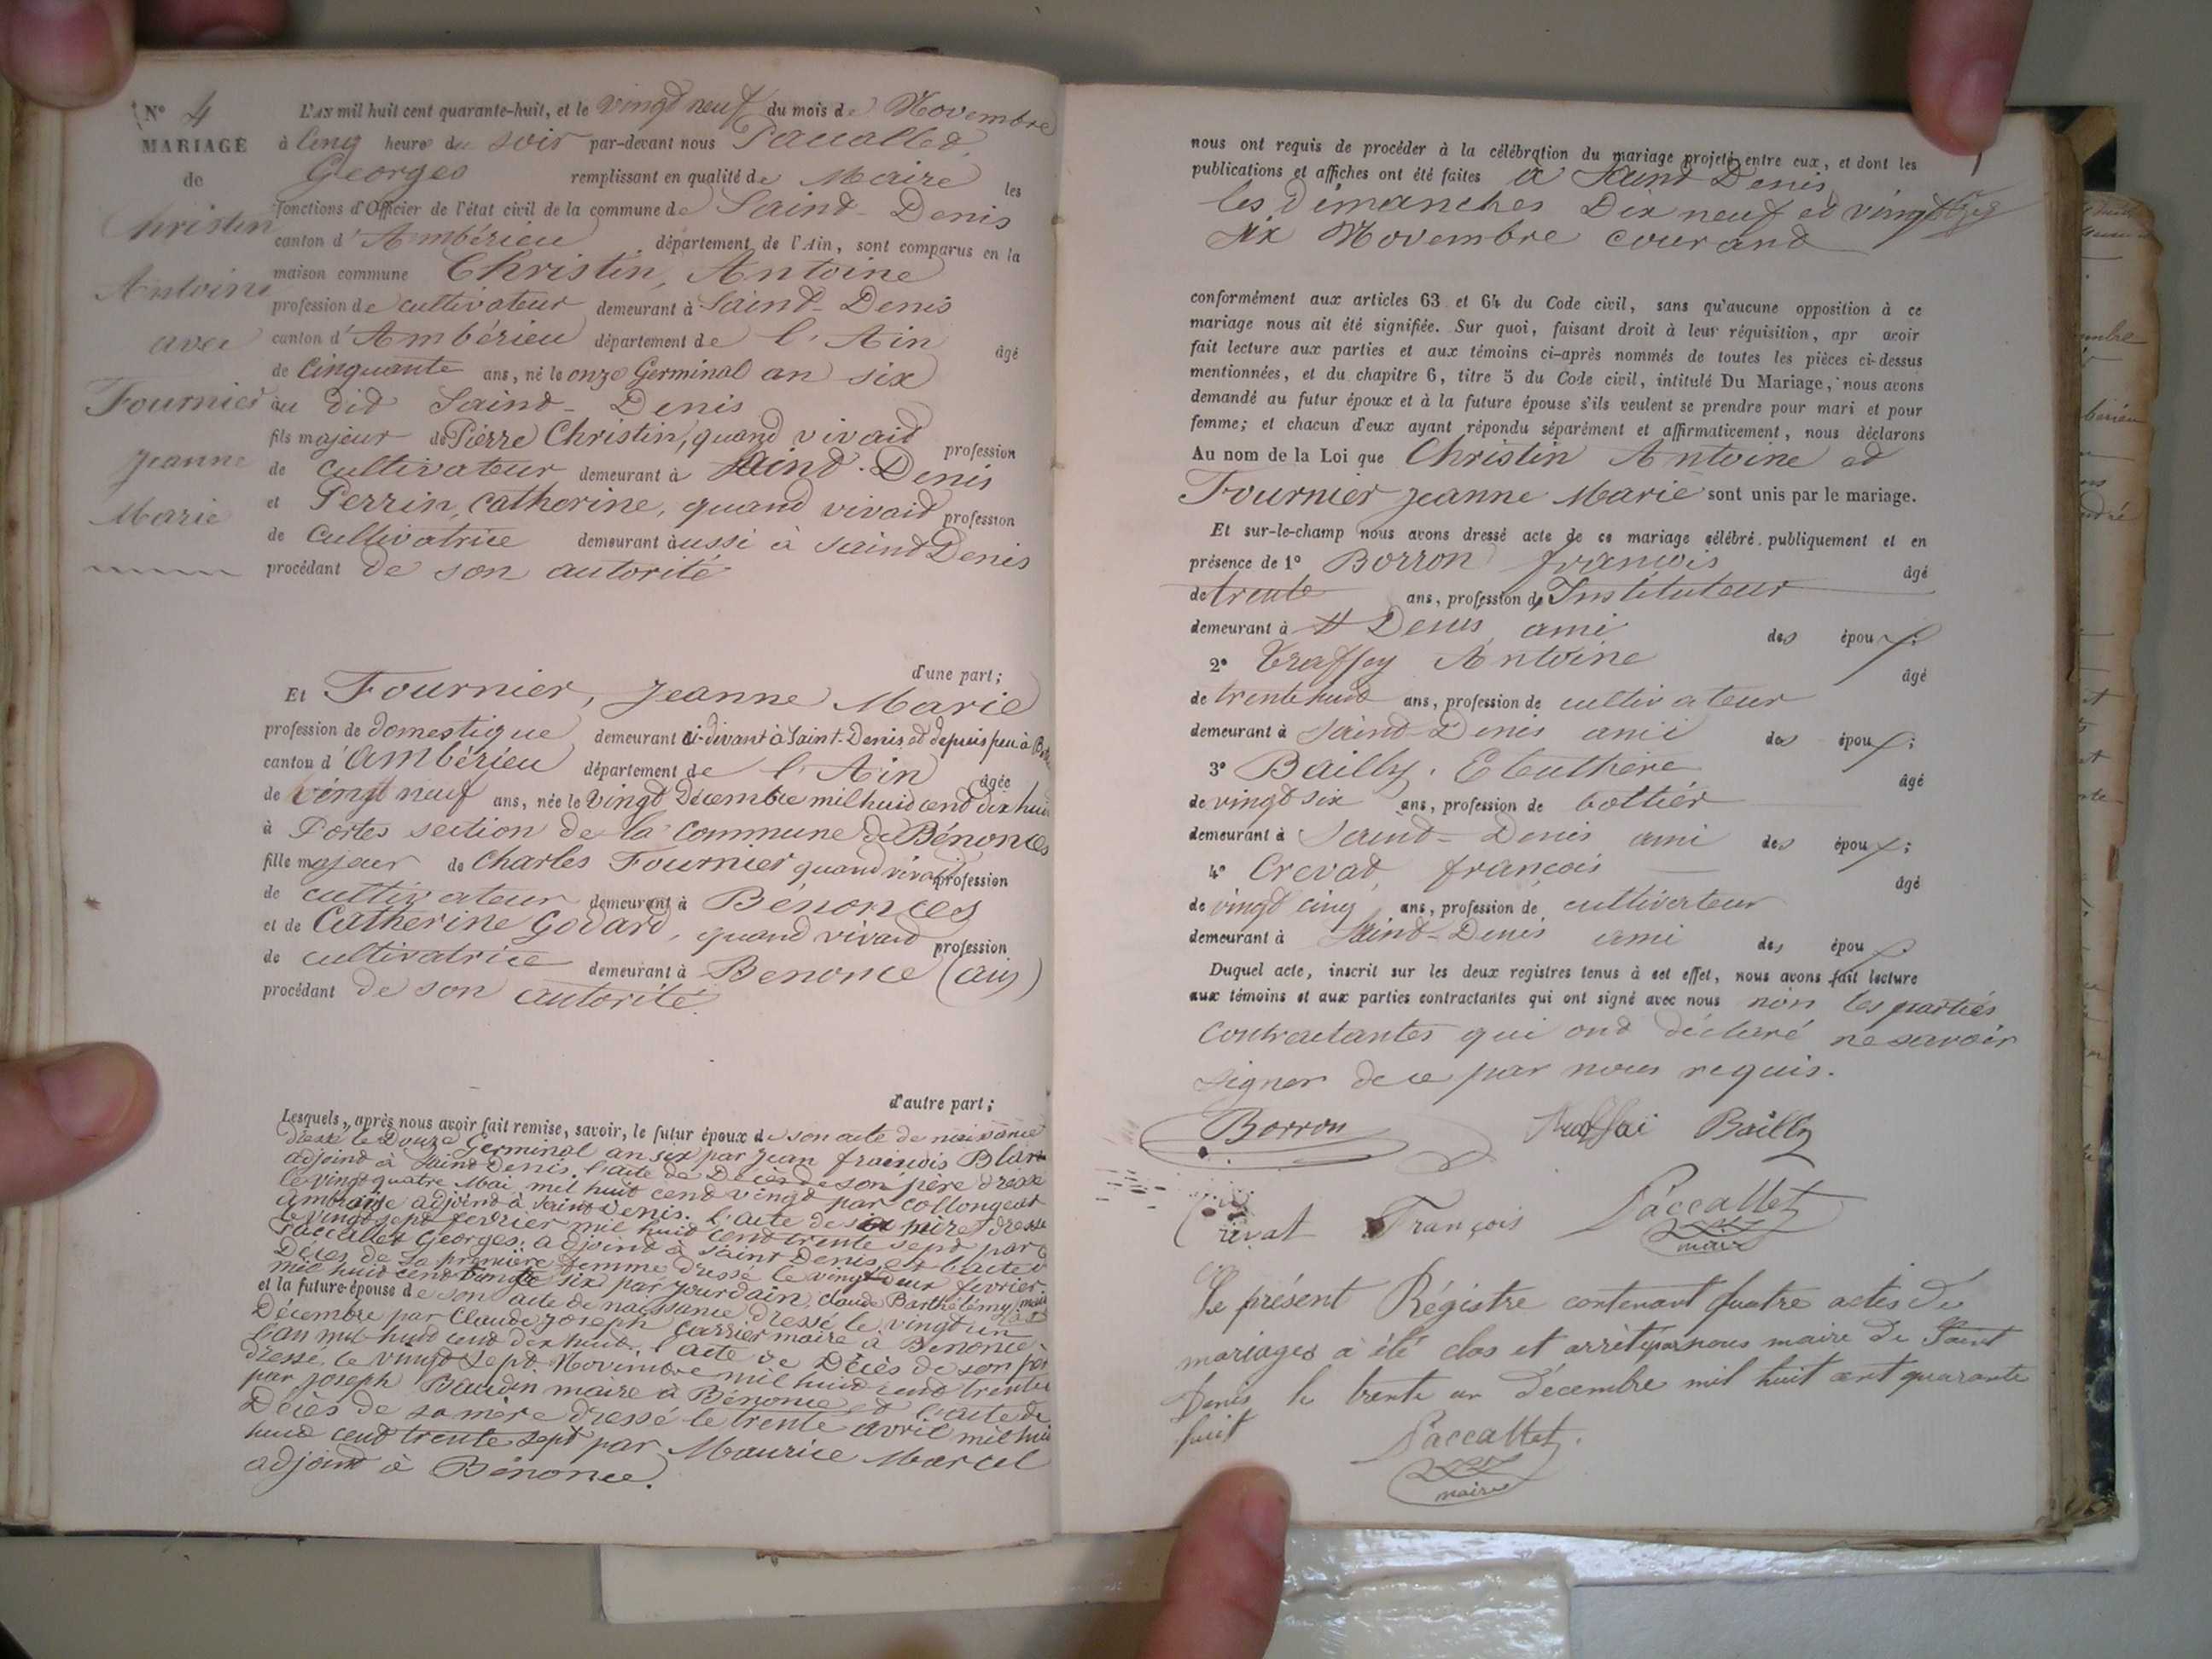 N° 4
MARIAGE
de
Christin
Antoine
avec
Fournier
Jeanne
Marie
L'an mil huit cent quarante-huit, et le vingt neuf du mois de Novembre
à cinq heure du soir par-devant nous Paccallet
Georges remplissant en qualité de Maire les
fonctions d'Officier de l'état civil de la commune de Saint-Denis
canton d'Ambérieu département de l'Ain, sont comparus en la
maison commune Christin, Antoine
profession de cultivateur demeurant à Saint-Denis
canton d'Ambérieu département de l'Ain âgé
de cinquante ans, né le onze Germinal an six
au dit Saint-Denis
fils majeur de Pierre Christin, quand vivait profession
de cultivateur demeurant à Saint-Denis
et Perrin, Catherine, quand vivait profession
de cultivatrice demeurant aussi à Saint Denis
procédant de son autorité
d'une part;
Et Fournier, Jeanne Marie
profession de domestique demeurant ci-devant à Saint-Denis et depuis peu à
canton d'Ambérieu département de l'Ain âgée
de vingt neuf ans, née le vingt Décembre mil huit cent dix huit
à Portes section de la commune de Bénonces
fille majeur de Charles Fournier quand vivait profession
de cultivateur demeurant à Bénonces
et de Catherine Godard, quand vivait profession
de cultivatrice demeurant à Benonce (ain)
procédant de son autorité.
d'autre part;
Lesquels, après nous avoir fait remise, savoir, le futur époux de son acte de naissance
dressé le Douze Germinal an six par Jean françois Blanc
adjoint à Saint Denis, l'acte de Décès de son père dressé
le vingt quatre Mai mil huit cent vingt par Collongeat
Ambroise adjoint à Saint Denis. l'acte de sa mère dressé
le vingt sept fevrier mil huit cent trente sept par
Paccallet Georges, adjoint à Saint Denis et l'acte de
Décès de sa première femme dressé le vingt deux fevrier
mil huit cent six par Jourdain, Claude Barthélemy maire
et la future épouse de son acte de naissance dressé le vingt un
Décembre par Claude Joseph Carrier maire à Benonce
l'an mil huit cent dix huit, l'acte de Décès de son père
dressé le vingt sept Novembre mil huit cent trente
par Joseph Baudin maire à Bénonce et l'acte de
Décès de sa mère dressé le trente avril mil huit
huit cent trente sept par Maurice Marcel
adjoint à Bénonce.
nous ont requis de procéder à la célébration du mariage projeté entre eux, et dont les
publications et affiches ont été faites à Saint Denis
les dimanches Dix neuf et vingt
six Novembre courant
conformément aux articles 63 et 64 du Code civil, sans qu'aucune opposition à ce
mariage nous ait été signifiée. Sur quoi, faisant droit à leur réquisition, apr avoir
fait lecture aux parties et aux témoins ci-après nommés de toutes les pièces ci-dessus
mentionnées, et du chapitre 6, titre 5 du Code civil, intitulé Du Mariage, nous avons
demandé au futur époux et à la future épouse s'ils veulent se prendre pour mari et pour
femme; et chacun d'eux ayant répondu séparément et affirmativement, nous déclarons
Au nom de la Loi que Christin Antoine et
Fournier Jeanne Marie sont unis par le mariage.
Et sur-le-champ nous avons dressé acte de ce mariage célébré publiquement et en
présence de 1° Borron françois âgé
de trente ans, profession de Instituteur
demeurant à St Denis ami des époux;
2° Traffey Antoine âgé
de trente huit ans, profession de cultivateur
demeurant à Saint-Denis ami des époux;
3° Bailly, Eleuthère âgé
de vingt six ans, profession de bottier
demeurant à Saint-Denis ami des époux;
4° Crevat, françois âgé
de vingt cinq ans, profession de cultivateur
demeurant à Saint-Denis ami des époux
Duquel acte, inscrit sur les deux registres tenus à cet effet, nous avons fait lecture
aux témoins et aux parties contractantes qui ont signé avec nous non les parties
contractantes qui ont déclaré ne savoir
signer de ce par nous requis.
Borron Bailly
François Paccallet
maire
Le présent Régistre contenant quatre actes de
mariages à été clos et arrêté par nous maire de Saint
Denis le trente un décembre mil huit cent quarante
huit
Paccallet
maire